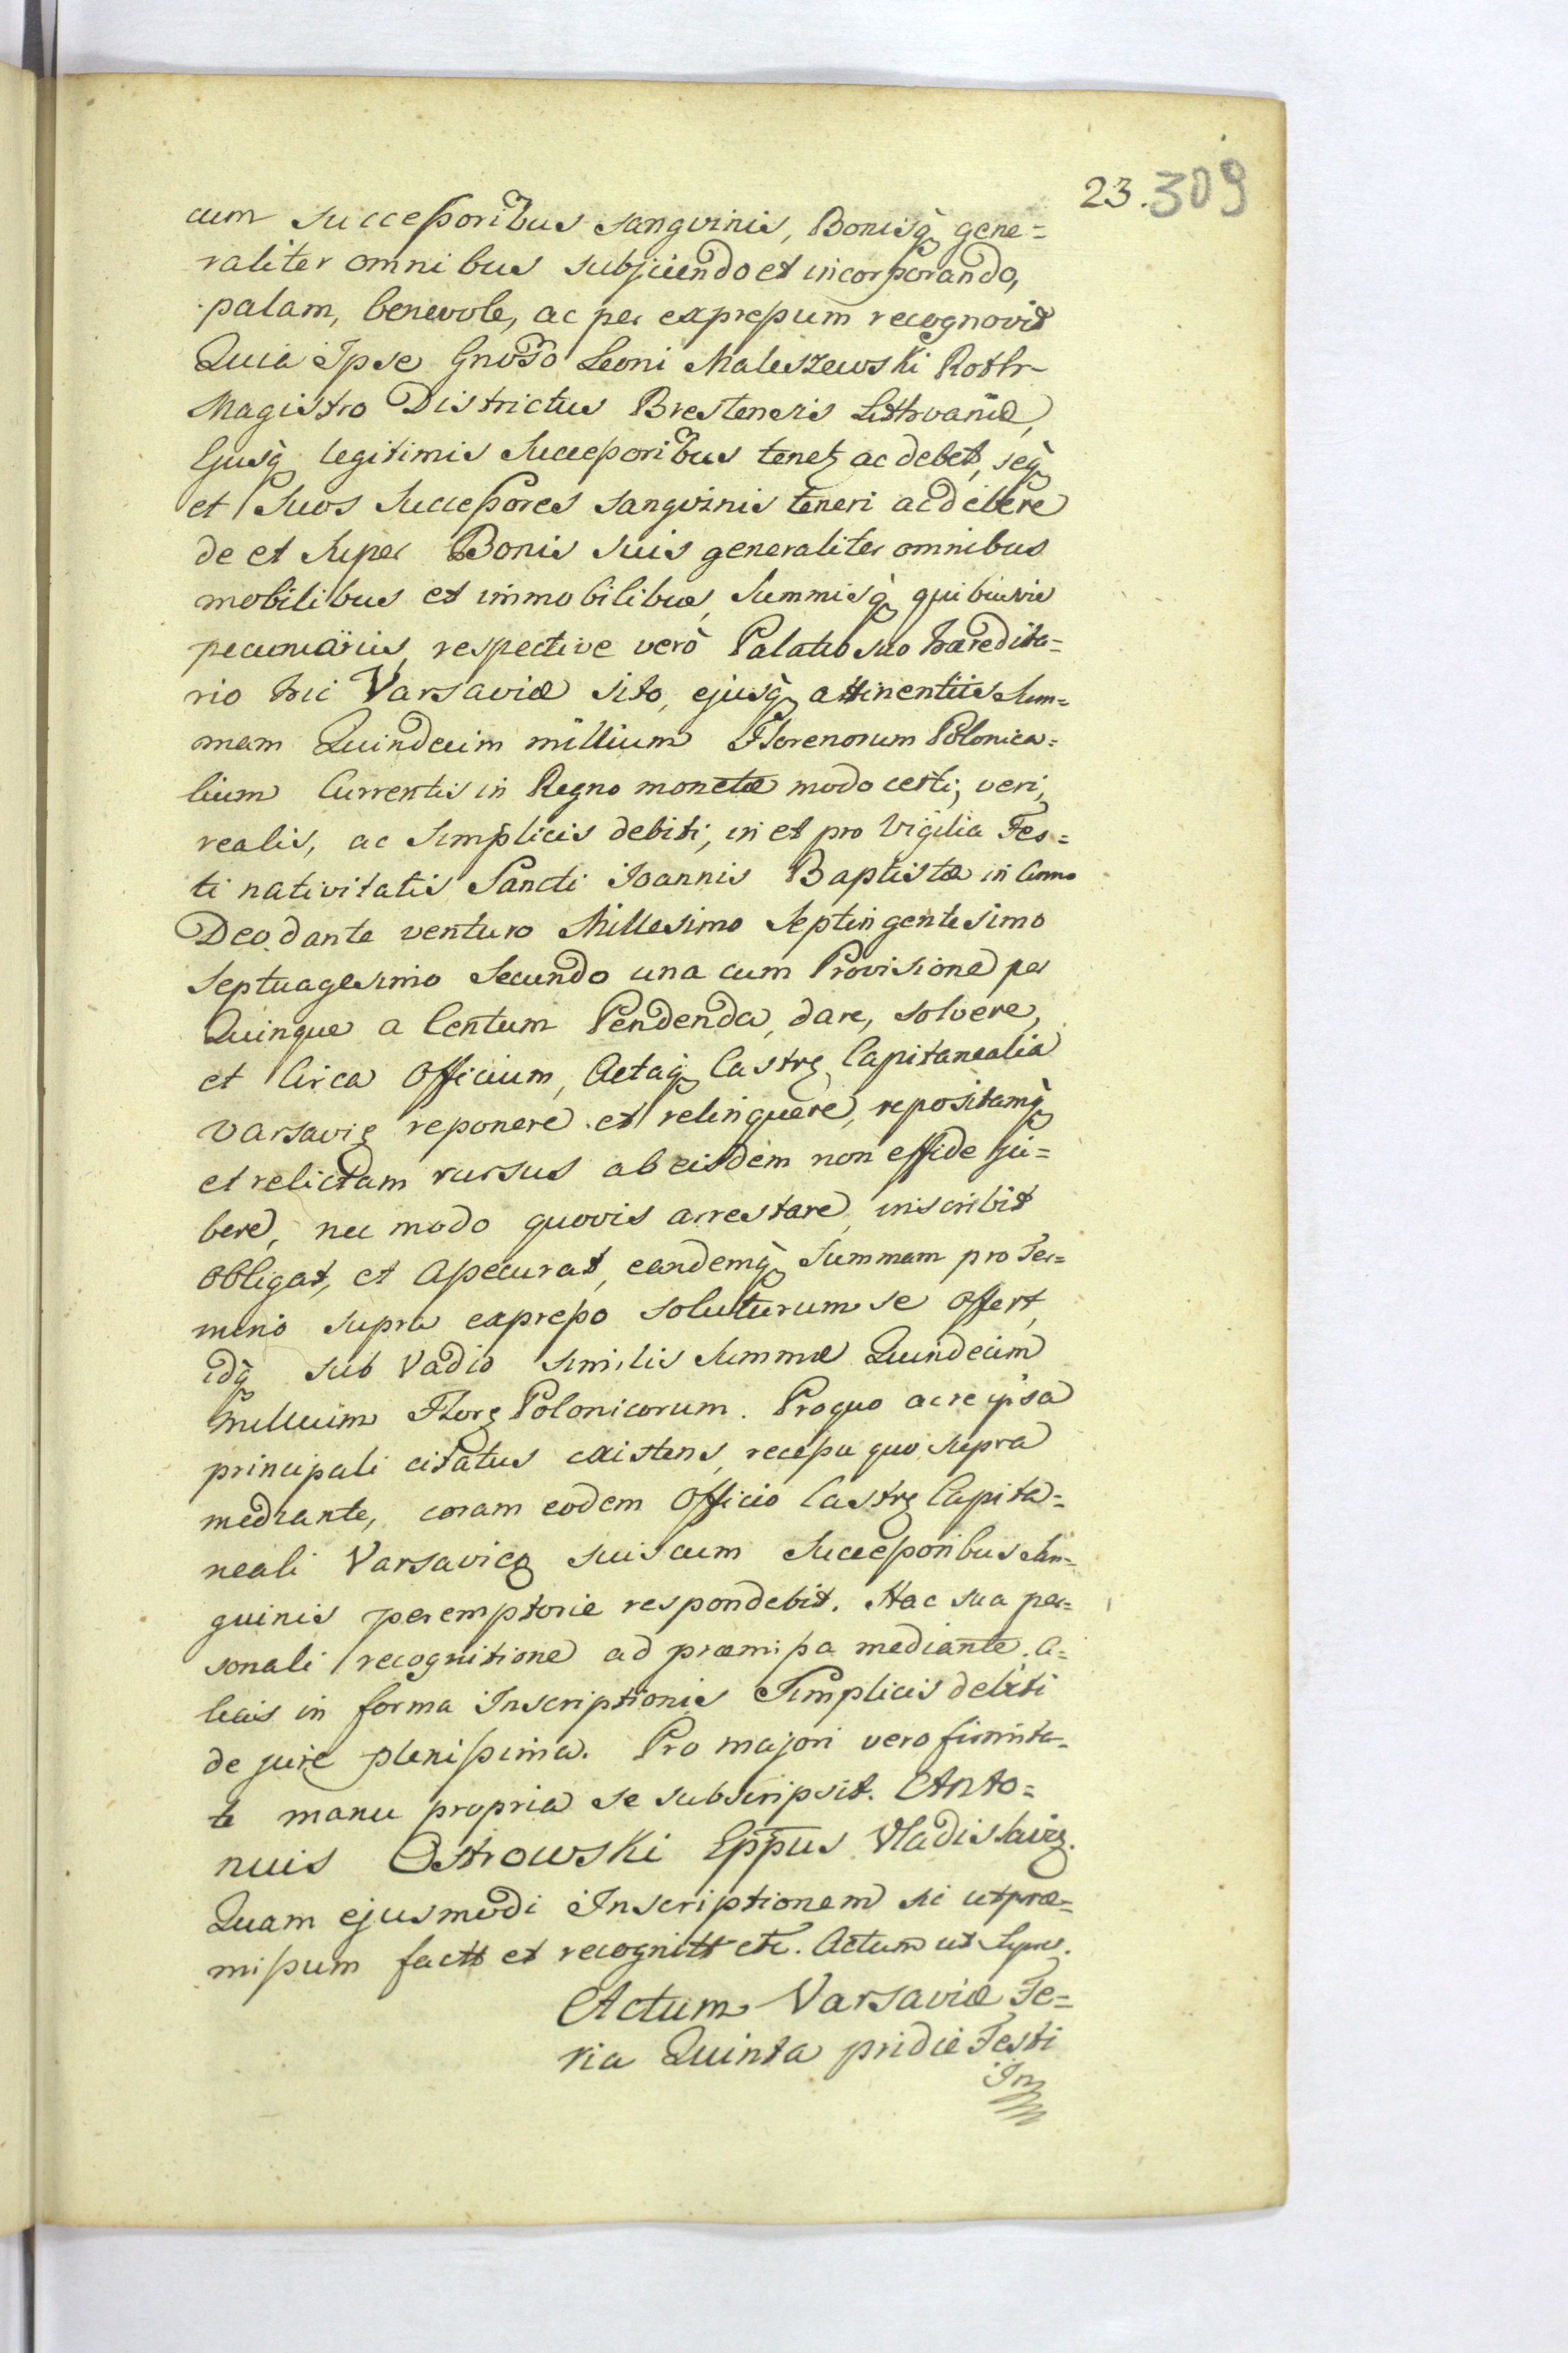 23. 309
cum Succeßoribus sangvinis, Bonisq̀ gene=
raliter omnibus subjiciendo et incorporando,
palam, benevole, ac per expreßum recognovit
Quia Ipse Gnoso Leoni Maleszewski Rothr
Magistro Districtus Brestensis Lithvaniæ,
Ejusq̀ legitimis Succeßoribus tenetz ac debet, seq̀
et Suos Succeßores sangvinis teneri ac debere
de et Super Bonis suis generaliter omnibus
mobilibus et immobilibus, Summisq̀ quibusvis
pecuniariis, respective verò Palatio suo hæredita=
rio hic Varsaviæ sito, ejusq̀ attinentiis Sum=
mam Quindecim millium Florenorum Polonica=
lium Currentis in Regno monetæ modo certi, veri,
realis, ac Simplicis debiti, in et pro Vigilia Fes=
ti nativitatis Sancti Joannis Baptistæ in Anno
Deo dante venturo Millesimo Septingentesimo
Septuagesimo Secundo una cum Provisione per
Quinque a Centum Pendenda, dare, solvere,
et Circa Officium, Actaq̀ Castrz Capitanealia
Varsaviz reponere et relinquere, repositamq̀
et relictam rursus ab eisdem non effide ju=
bere, nec modo quovis arrestare, inscribit
Obligat, et Aßecurat, eandemq̀ Summam pro Ter=
mino supra expreßo soluturum se offert,
idq̀ sub Vadio similis Summæ Quindecim
millium Florz Polonicorum. Pro quo ac re ipsa
principali citatus existens, receßu quo supra
mediante, coram eodem Officio Castrz Capita=
neali Varsavicz suis cum Succeßoribus San=
guinis peremptorie respondebit. Hac sua per=
sonali recognitione ad præmißa mediante. A=
liis in forma Inscriptionis Simplicis debiti
de jure plenißima. Pro majori vero firmita=
te manu propria se subscripsit. Anto=
nius Ostrowski Eppus Vladislaviz.
Quam ejusmodi Inscriptionem sic ut præ=
mißum factt et recognitt etc. Actum ut Supra.
Actum Varsaviæ Fe=
ria Quinta pridie Festi
In